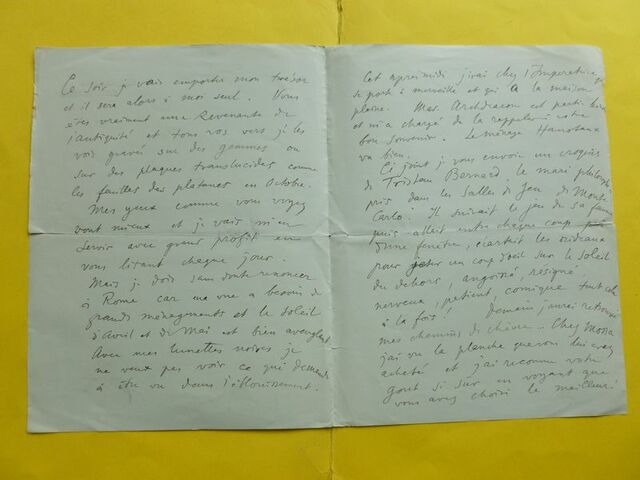 Ce soir je vais emporter mon trésor
et il sera alors à moi seul. Vous
êtes vraiment une Revenante de
l'antiquité et tous vos vers je les
vois gravés sur des gemmes ou
sur des plaques translucides comme
les feuilles des platanes en Octobre.
Mes yeux comme vous voyez
vont mieux et je vais m'en
servir avec grand profit en
vous lisant chaque jour.
Mais je dois sans doute renoncer
à Rome car ma vue a besoin de
grands ménagements et le soleil
d'Avril et de Mai est bien aveuglant
Avec mes lunettes noires je
ne veux pas voir ce qui demande
à être vu dans l'éblouissement.
Cet après midi j'irai chez l'Impératrice qui
se porte à merveille et qui a la maison
pleine. Mes Archdeacon est parti hier
et m'a chargé de la rappeler à votre
bon souvenir. Le ménage Hanotaux
va bien.
Ci joint je vous envoie un croquis
de Tristan Bernard, le mari philosophe
pris dans les salles de Jeu de Monte
Carlo. Il suivait le jeu de sa femme
puis allait entre chaque coup
d'une fenêtre, écartait les rideaux
pour jeter un coup d'œil sur le soleil
du dehors, angoissé, résigné,
nerveux, patient, comique tout cela
à la fois! Demain j'aurai retrouvé
mes chemins de chèvre. Chez Mossa
j'ai vu la planche que vous lui avez
acheté et j'ai reconnu votre
goût si sûr en voyant que
vous avez choisi le meilleur!